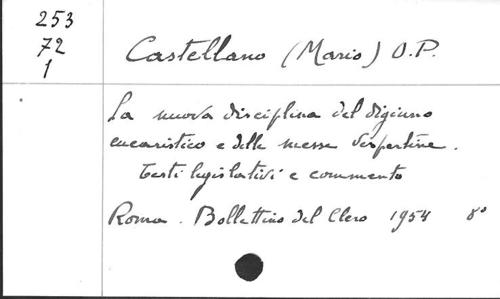 253
72
1
Castellano (Mario) O.P.
La nuova disciplina del digiuno
eucaristico e delle messe vespertine.
Testi legislativi e commento
Roma. Bollettino del Clero 1954 8°